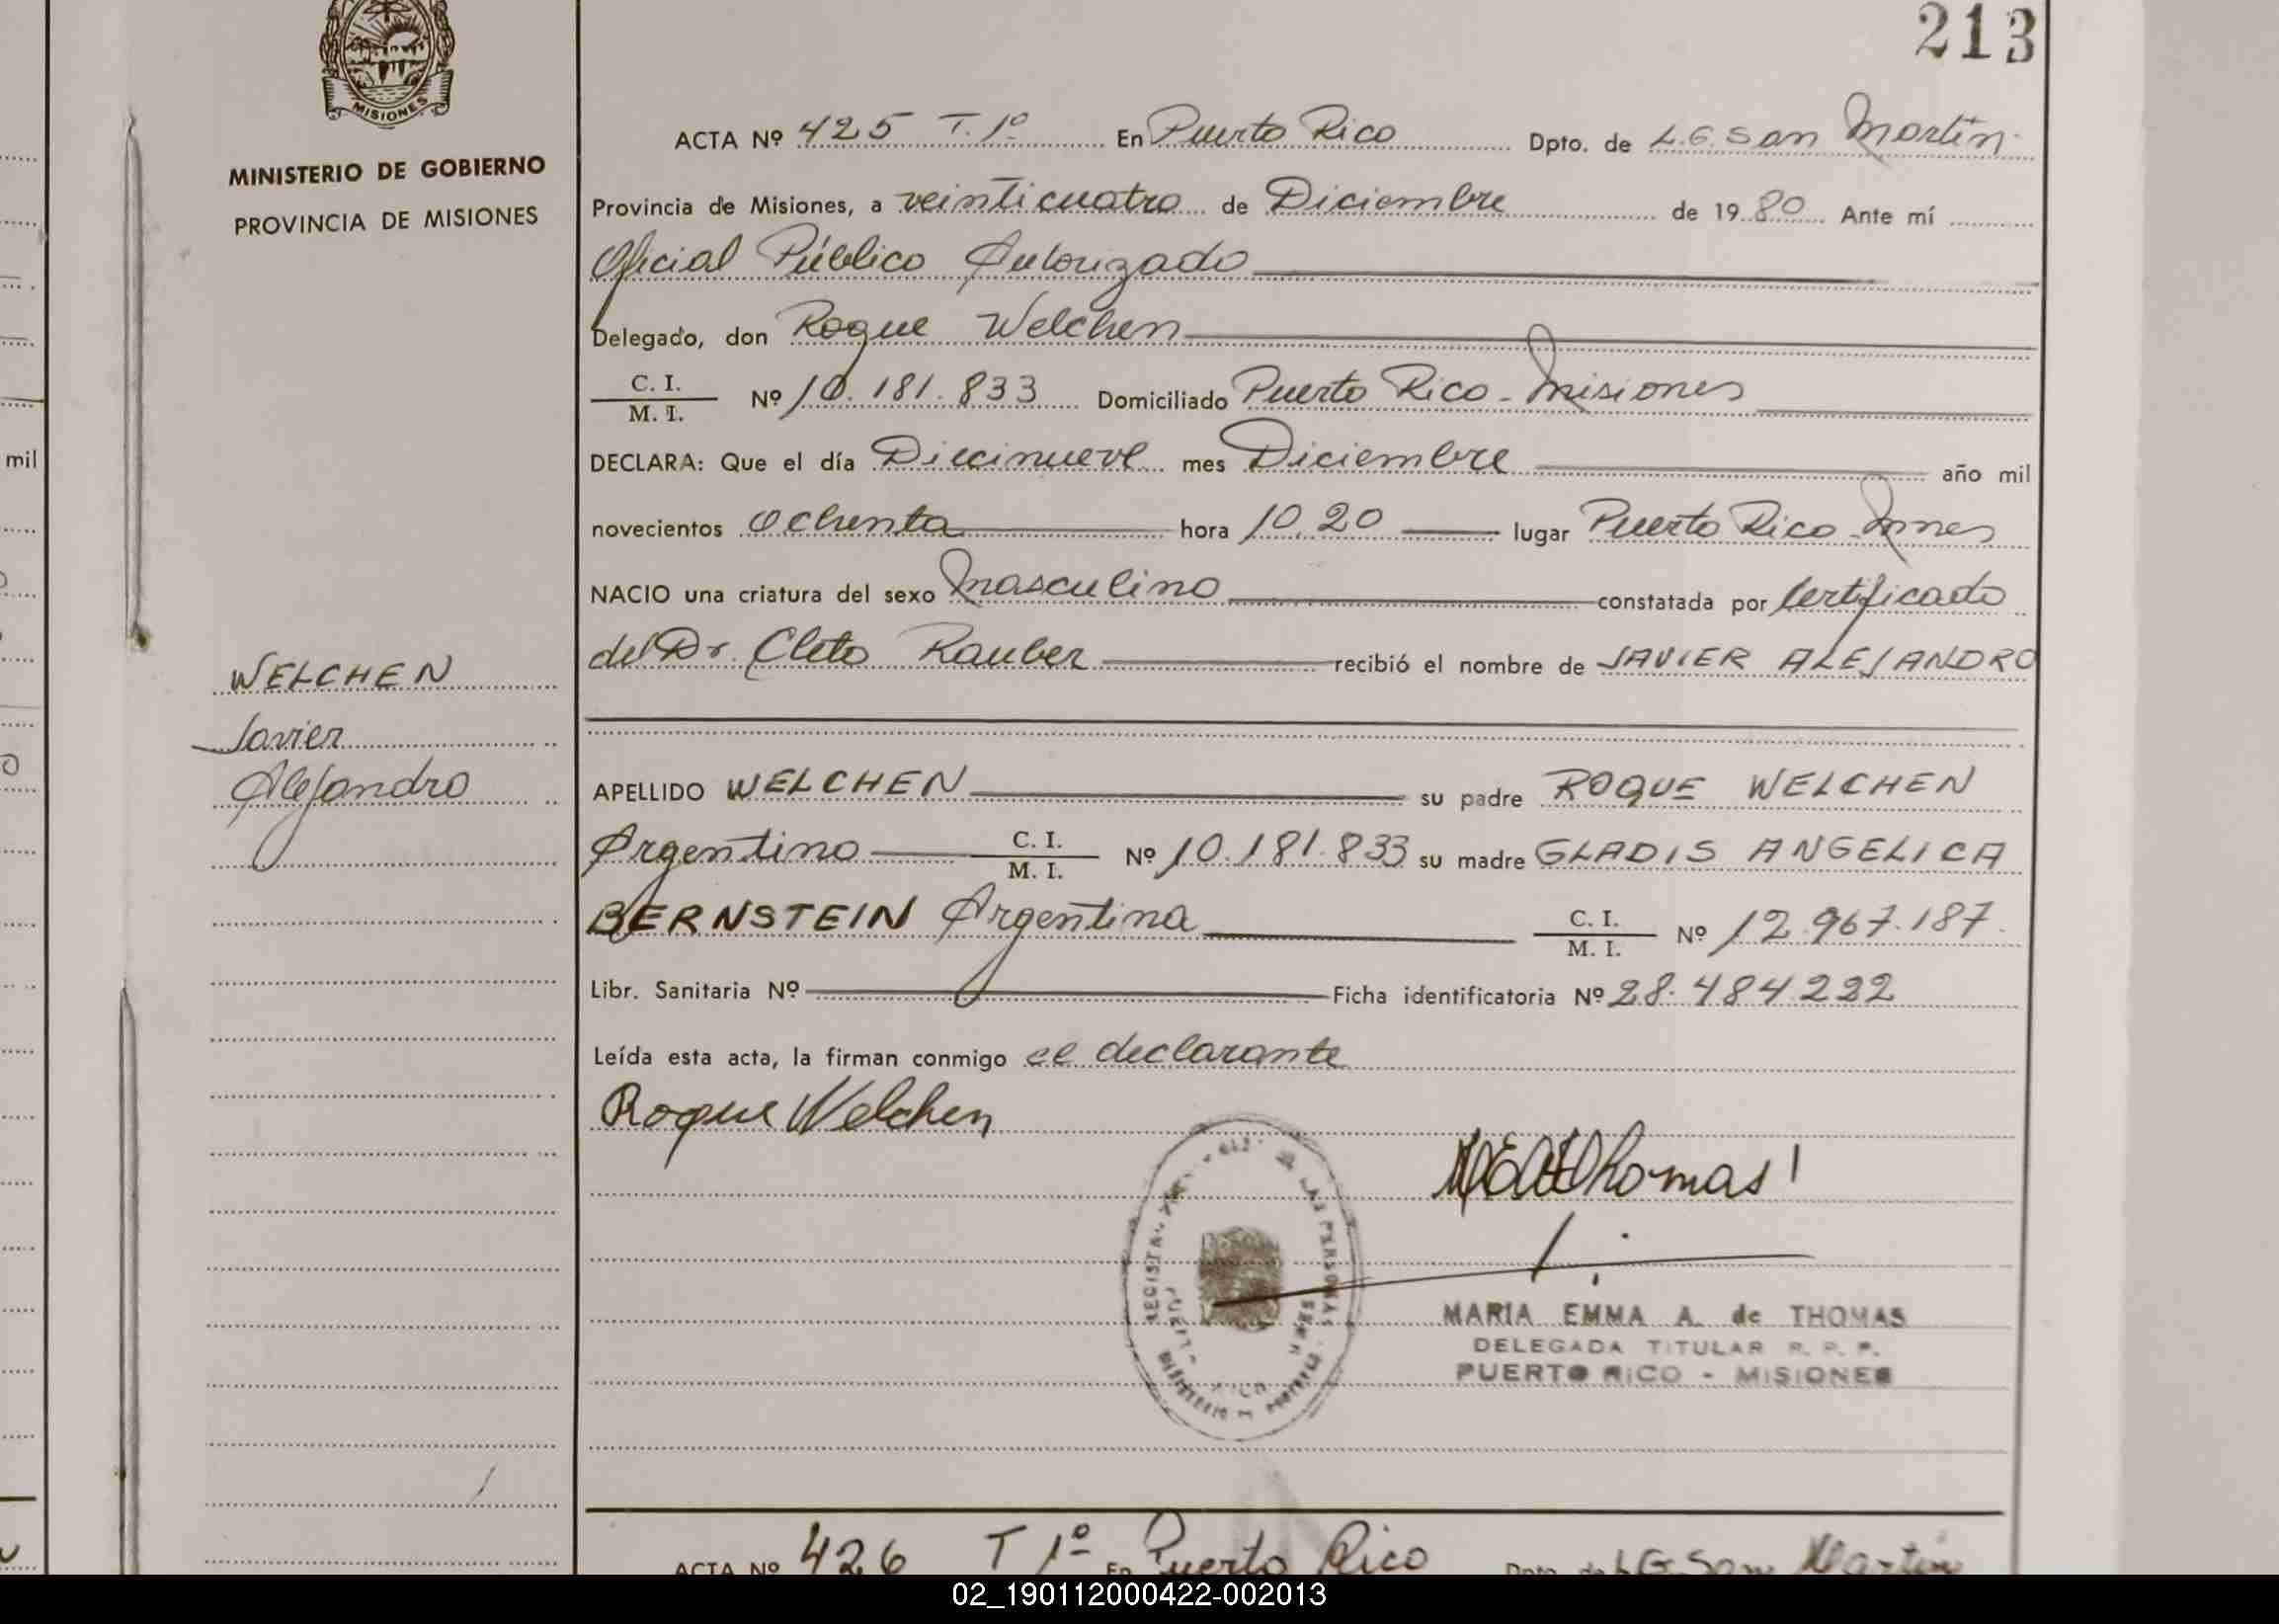 213
MISIONES
MINISTERIO DE GOBIERNO
PROVINCIA DE MISIONES
WELCHEN
Javier
Alejandro
ACTA Nº 425 T. 1º En Puerto Rico Dpto. de L.G. San Martín
Provincia de Misiones, a veinticuatro de Diciembre de 1980 Ante mí
Oficial Público Autorizado
Delegado, don Roque Welchen
C. I.
M. I. Nº 10.181.833 Domiciliado Puerto Rico - Misiones
DECLARA: Que el día Diecinueve mes Diciembre año mil
novecientos ochenta hora 10,20 lugar Puerto Rico Mnes
NACIO una criatura del sexo Masculino constatada por Certificado
del Dr. Cleto Rauber recibió el nombre de JAVIER ALEJANDRO
APELLIDO WELCHEN su padre ROQUE WELCHEN
Argentino C. I.
M. I. Nº 10.181.833 su madre GLADIS ANGELICA
BERNSTEIN Argentina C. I.
M. I. Nº 12.967.187.
Libr. Sanitaria Nº Ficha identificatoria Nº 28.484.222
Leída esta acta, la firman conmigo el declarante
Roque Welchen
Thomas
MARIA EMMA A. de THOMAS
DELEGADA TITULAR R. P. P.
PUERTO RICO - MISIONES
LAS PERSONAS
RICO
ACTA Nº 426 T 1º En Puerto Rico Dpto. de L G San Martin
mil
02_190112000422-002013